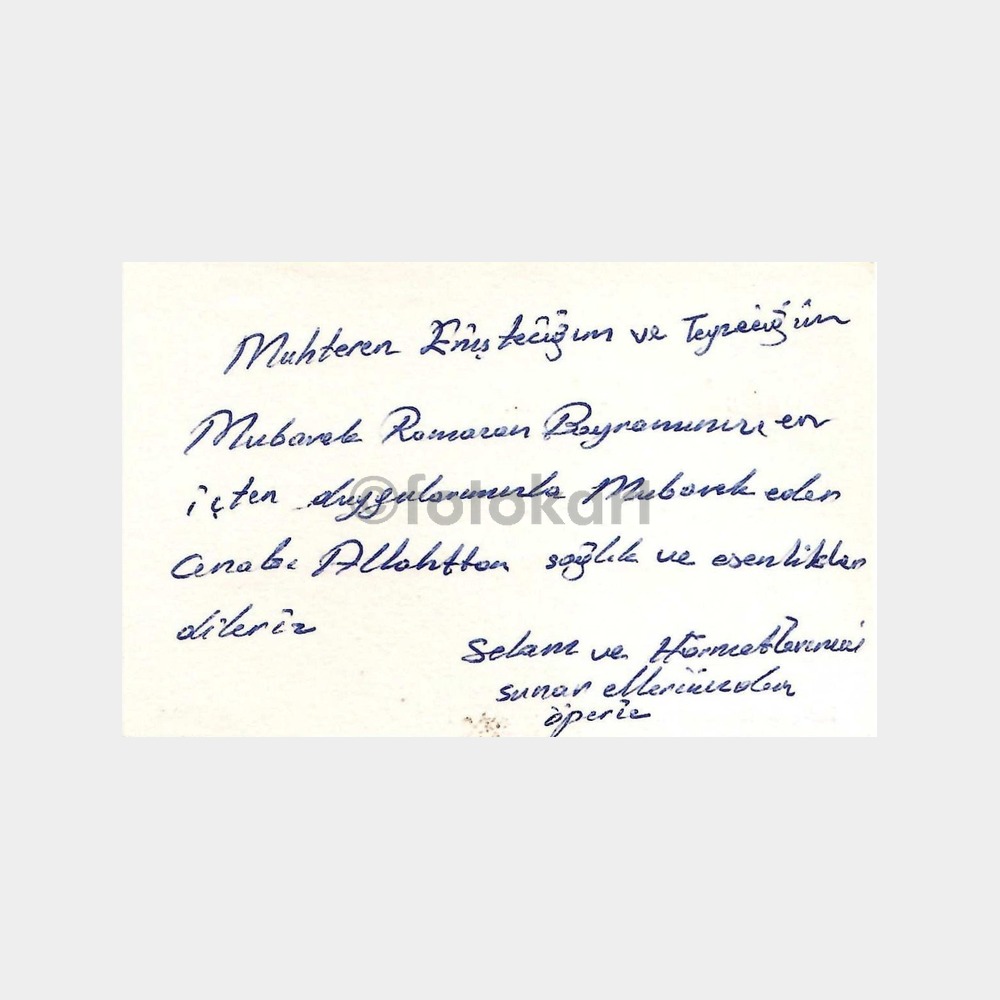 Muhterem Enişteciğim ve Teyzeciğim
Mubarek Ramazan Bayramınızı en
içten duygularımızla Mubarek eder
Cenabı Allahttan sağlık ve esenlikler
dileriz
Selam ve Hörmetlerimizi
sunar ellerinizden
öperiz
©fotokart